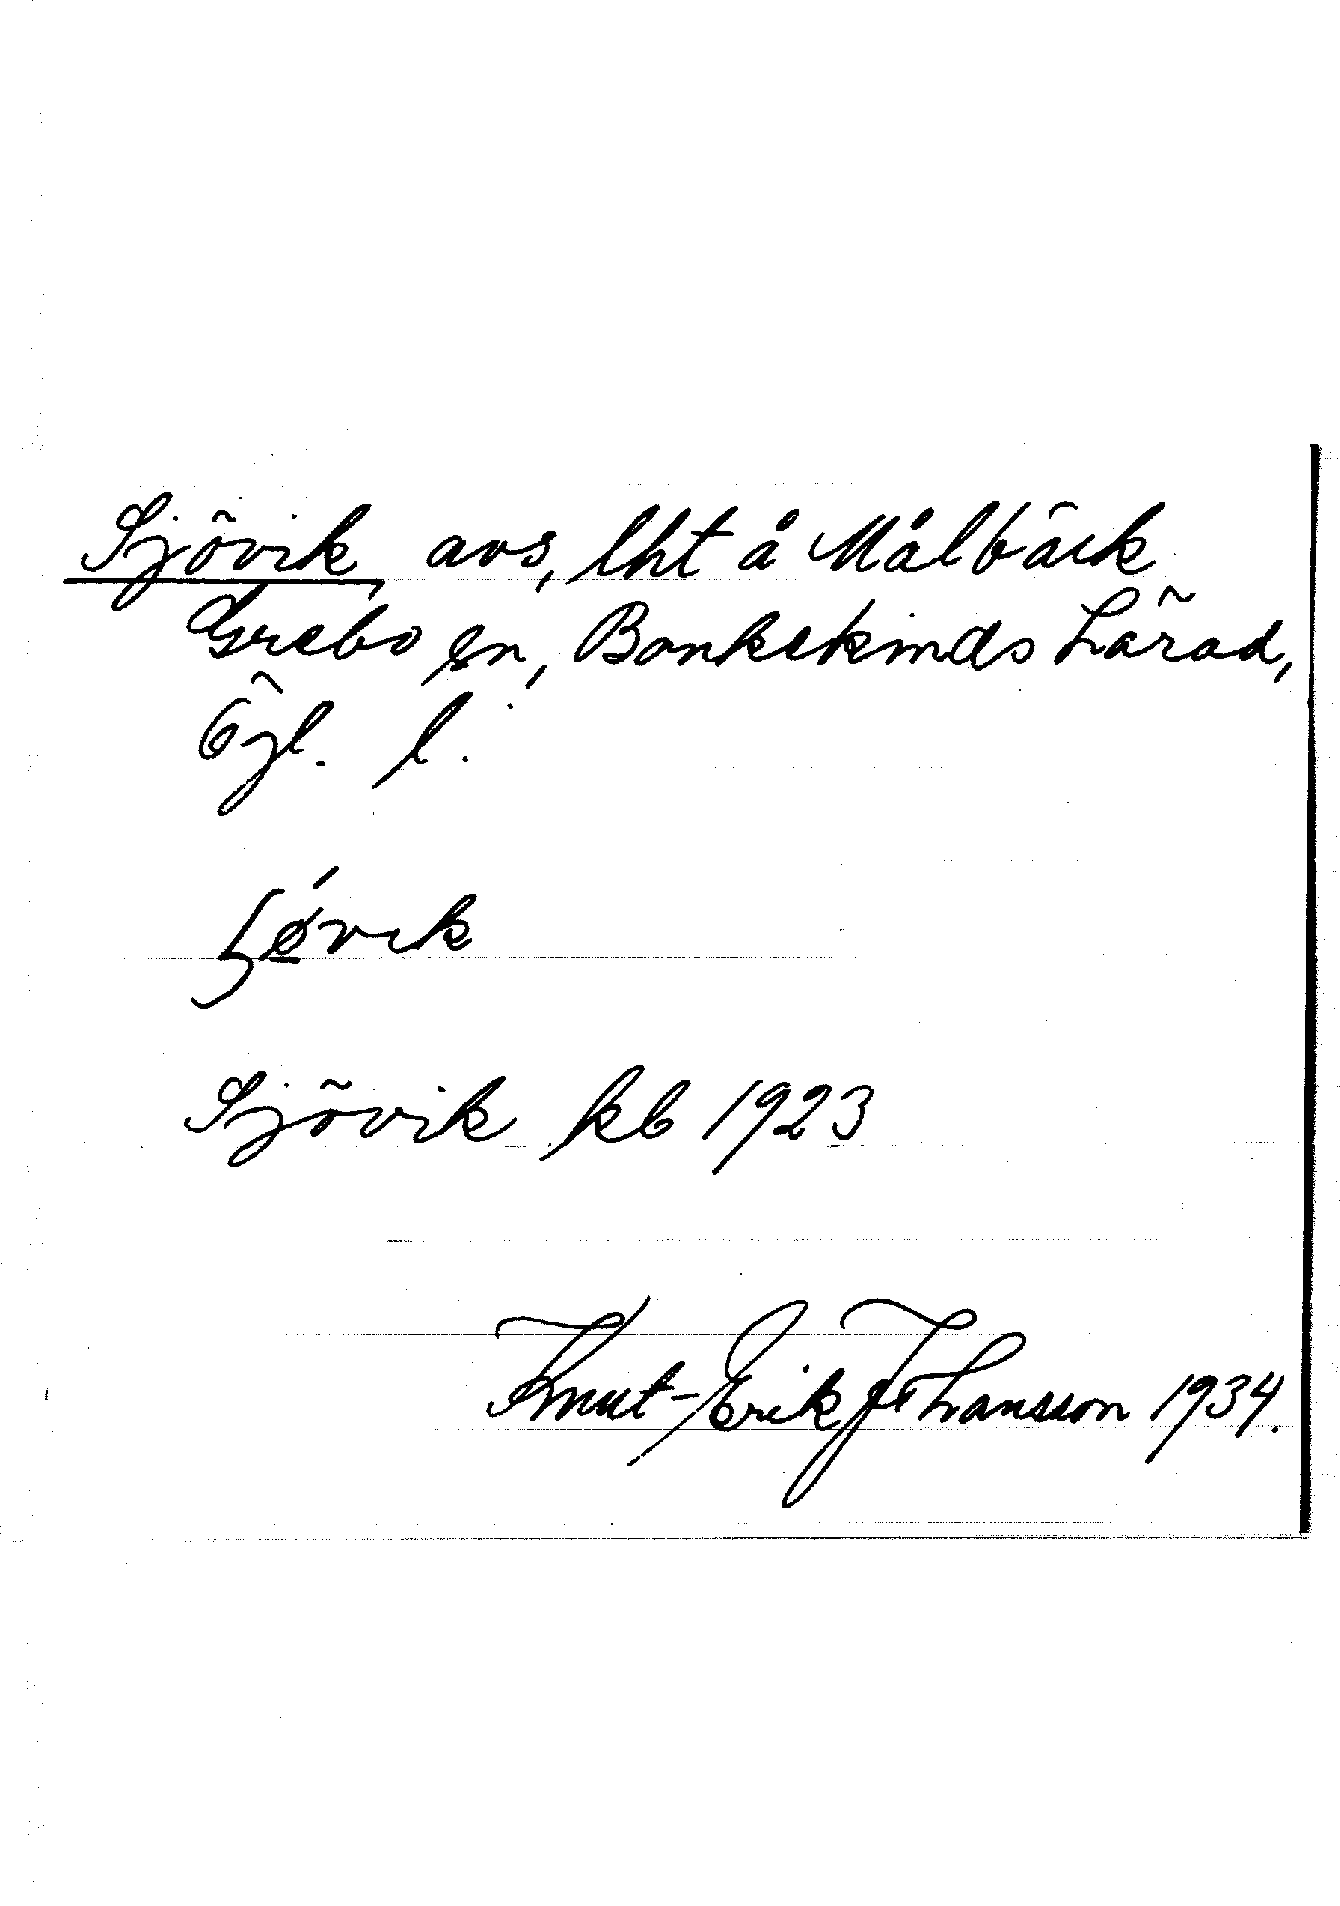 Sjövik, avs, lht å Målbäck
Grebo sn, Bankekinds härad,
Ögl. l.
ʃǿvik
Sjövik kb 1923
Knut-Erik Johansson 1934.